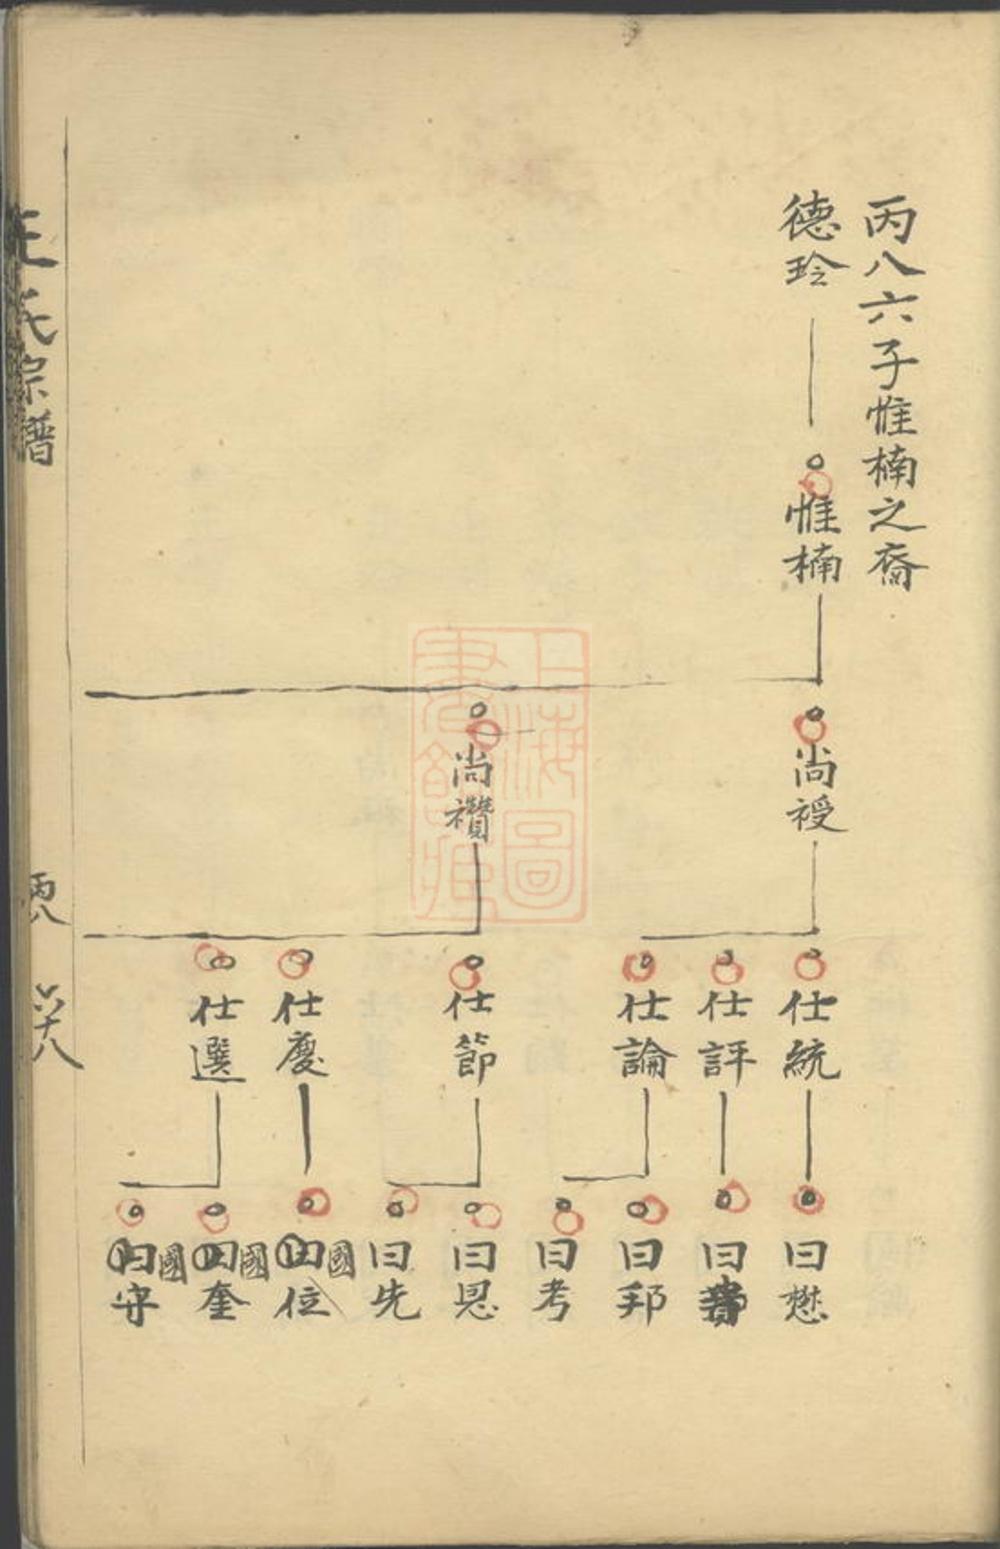 丙八六子惟楠之裔
德玲
惟楠
尚授
尚禶
仕統
仕評
仕論
仕節
仕慶
仕選
曰懋
曰
曰邦
曰考
曰恩
曰先
曰位
國
曰奎
國
曰守
國
王氏宗譜
丙八
上海圖
書館藏